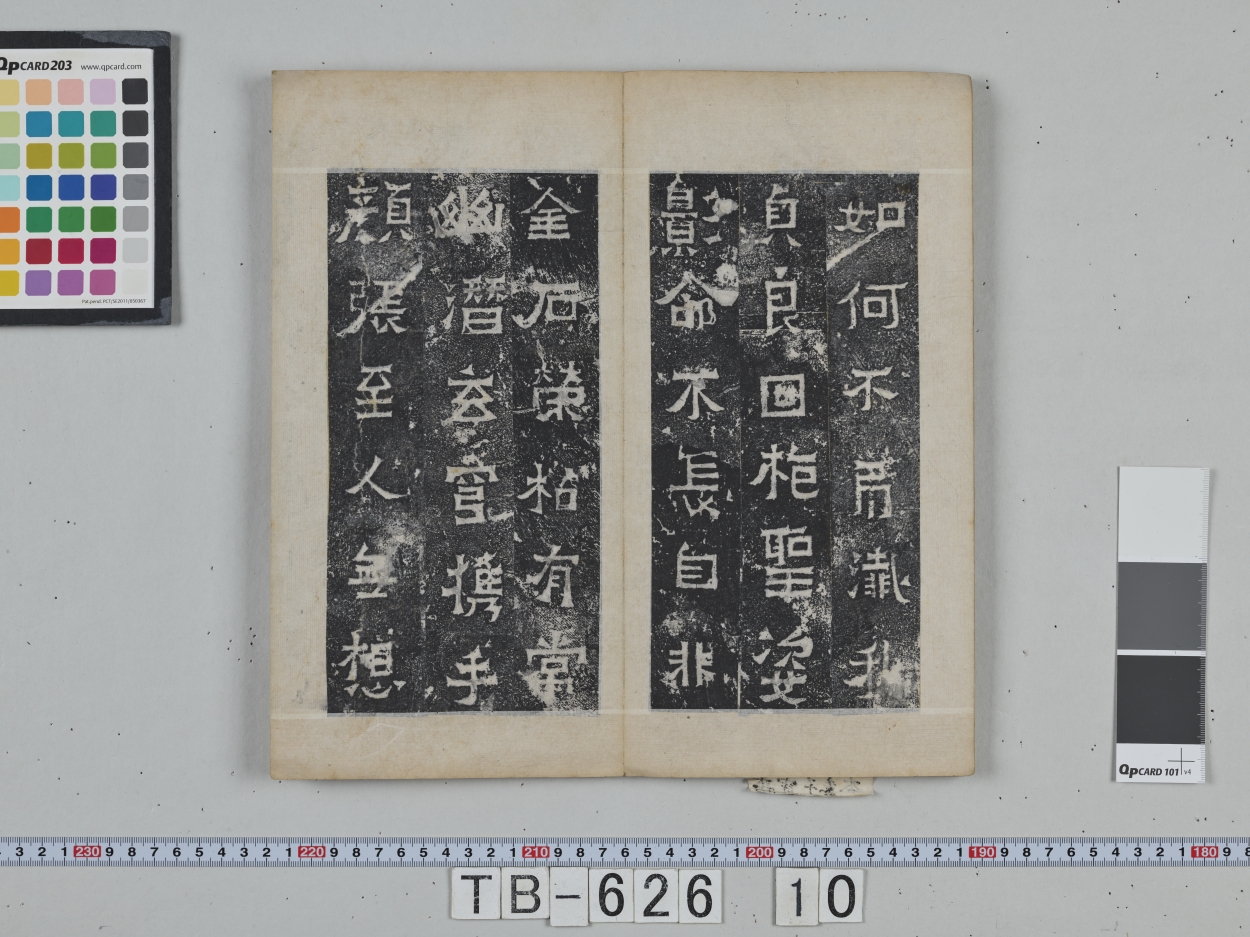 如何不弔瀸我
貞良回聖姿
影命不自非
金石榮枯有常
幽潛玄宮攜手
顏張至人無想
QpCARD 203 www.qpcard.com
QpCARD 101 v4
3 2 1 230 9 8 7 6 5 4 3 2 1 220 9 8 7 6 5 4 3 2 1 210 9 8 7 6 5 4 3 2 1 200 9 8 7 6 5 4 3 2 1 190 9 8 7 6 5 4 3 2 1 180 9 8
TB-626 10